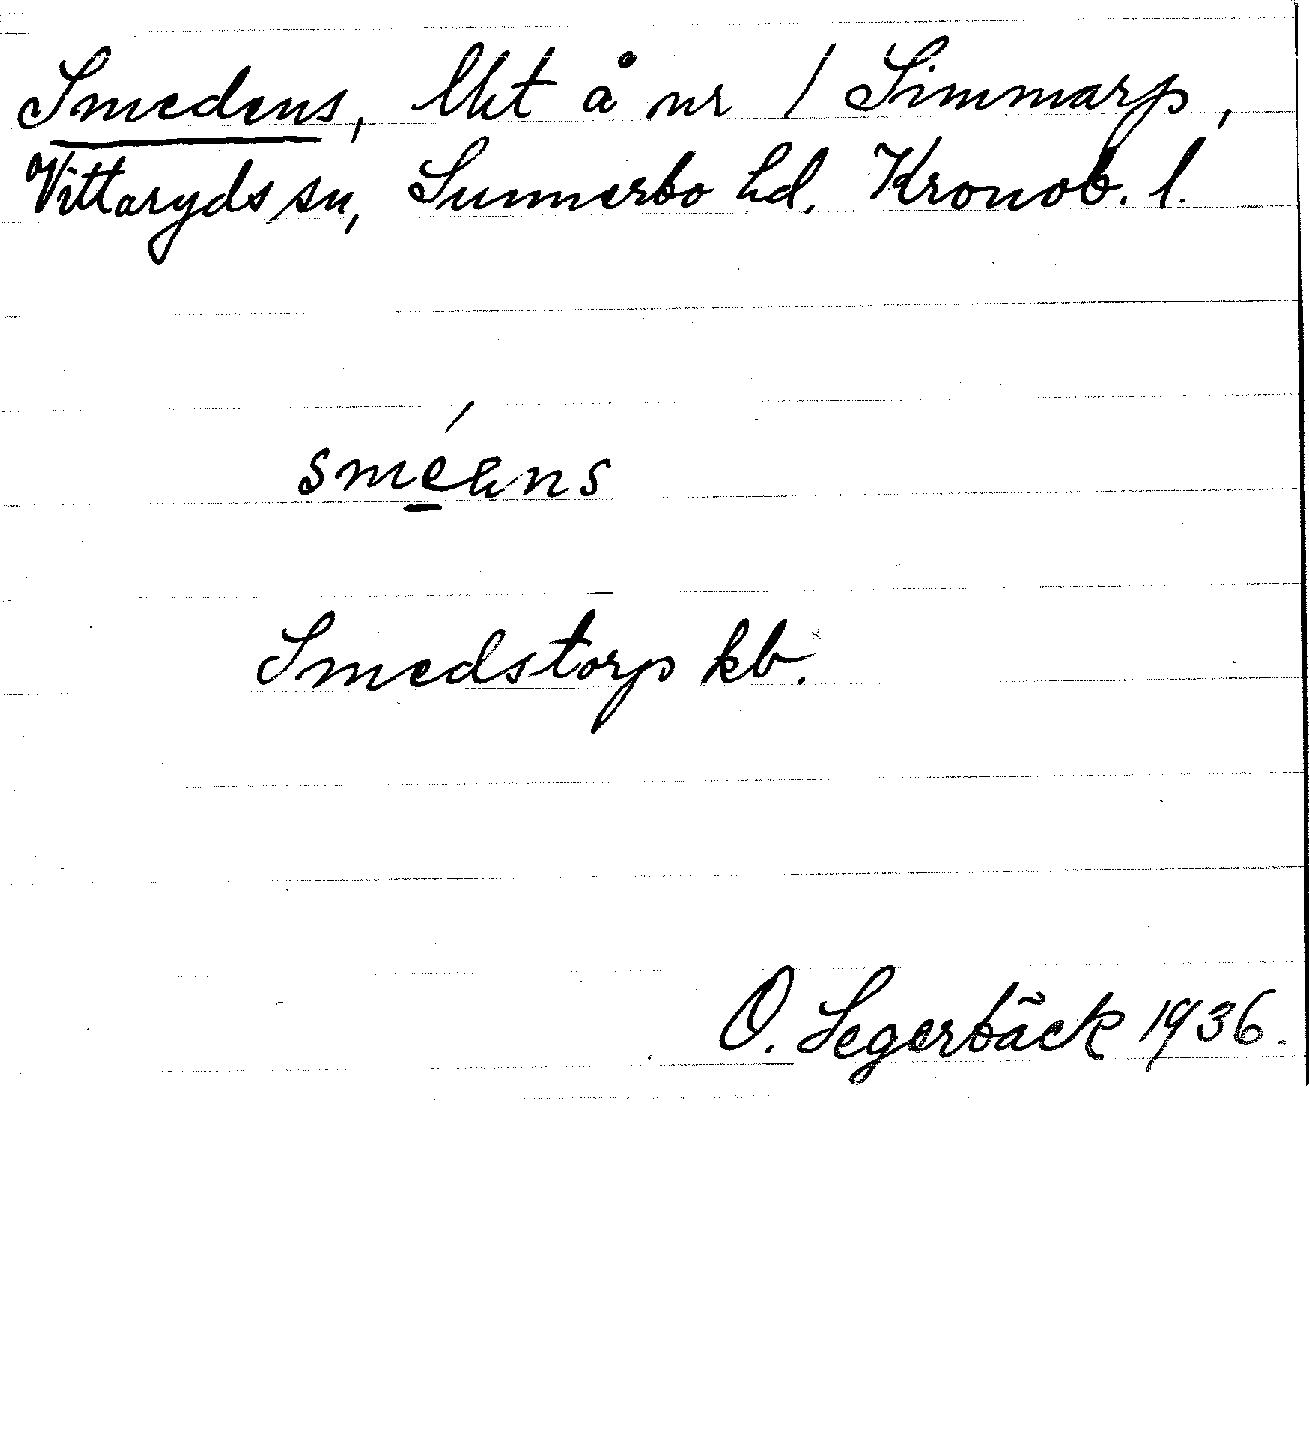 Smedens, lht å nr 1 Simmarp,
Vittaryds sn, Sunnerbo hd. Kronob. l.
sméens
Smedstorp kb.
O. Segerbäck 1936.